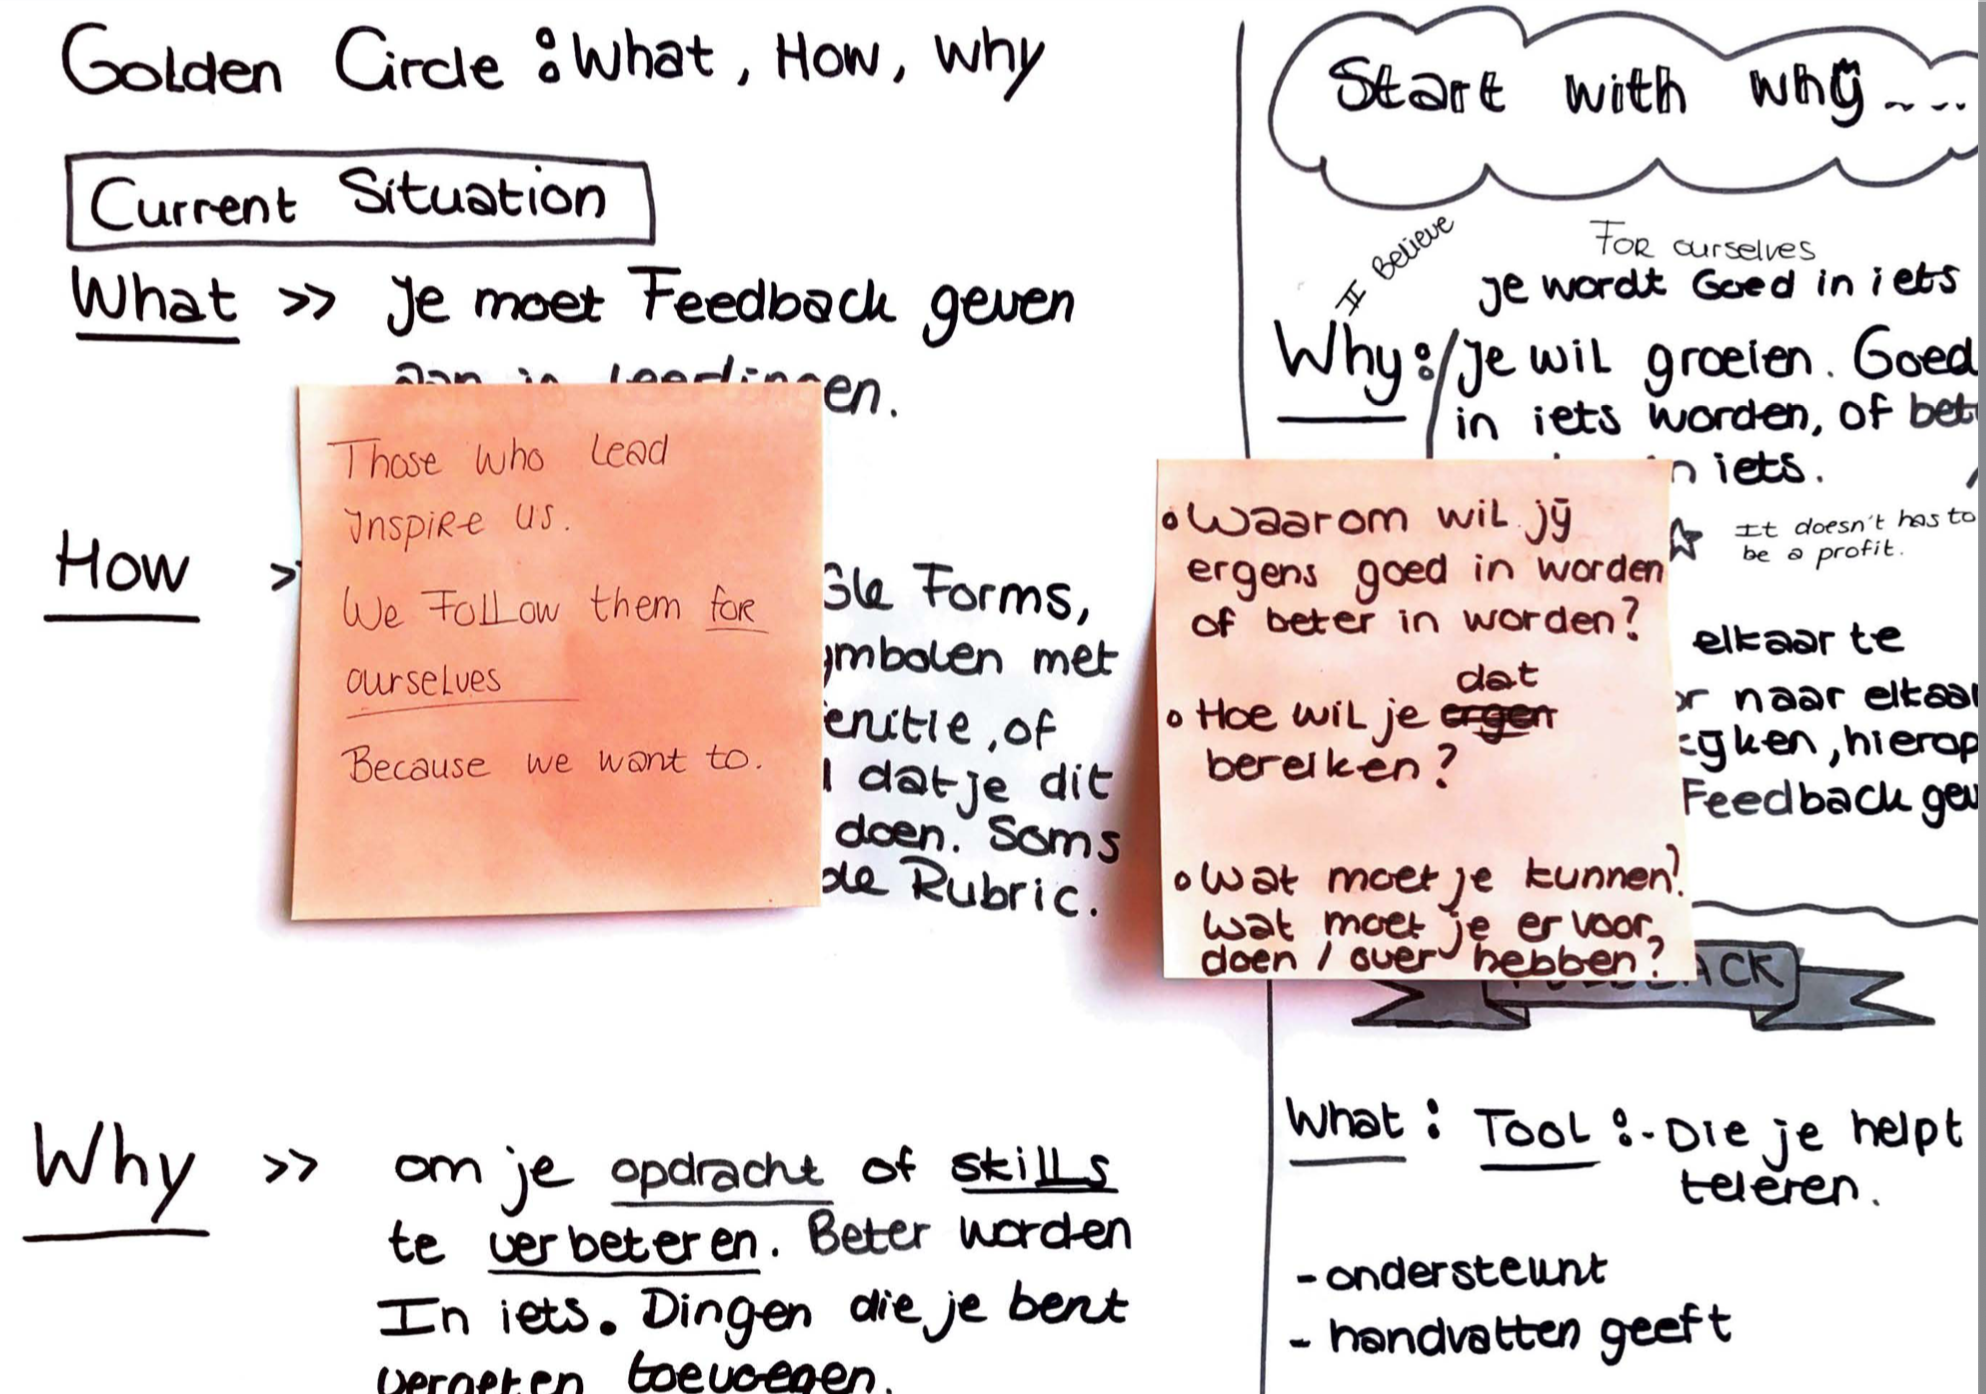 Golden Circle : What, How, Why
Current Situation
What >> Je moet Feedback geven
aan je leerlingen.
Those who Lead
Inspire us.
We Follow them for
ourselves
Because we want to.
How >
Gle Forms,
mbolen met
enitie, of
dat je dit
doen. Soms
de Rubric.
Why >> om je opdracht of skills
te verbeteren. Beter worden
In iets. Dingen die je bent
vergeten toevoegen.
Start with why ....
I Believe
For ourselves
je wordt Goed in iets
Why: / je wil groeien. Goed
in iets worden, of bet
n iets.
☆ It doesn't has to
be a profit.
• Waarom wil jij
ergens goed in worden
of beter in worden?
dat
• Hoe wil je ergen
bereiken?
• Wat moet je kunnen?
Wat moet je er voor
doen / over hebben?
elkaar te
r naar elkaar
ken, hierop
Feedback gev
FEEDBACK
What : Tool : - Die je helpt
te leren.
- ondersteunt
- handvatten geeft